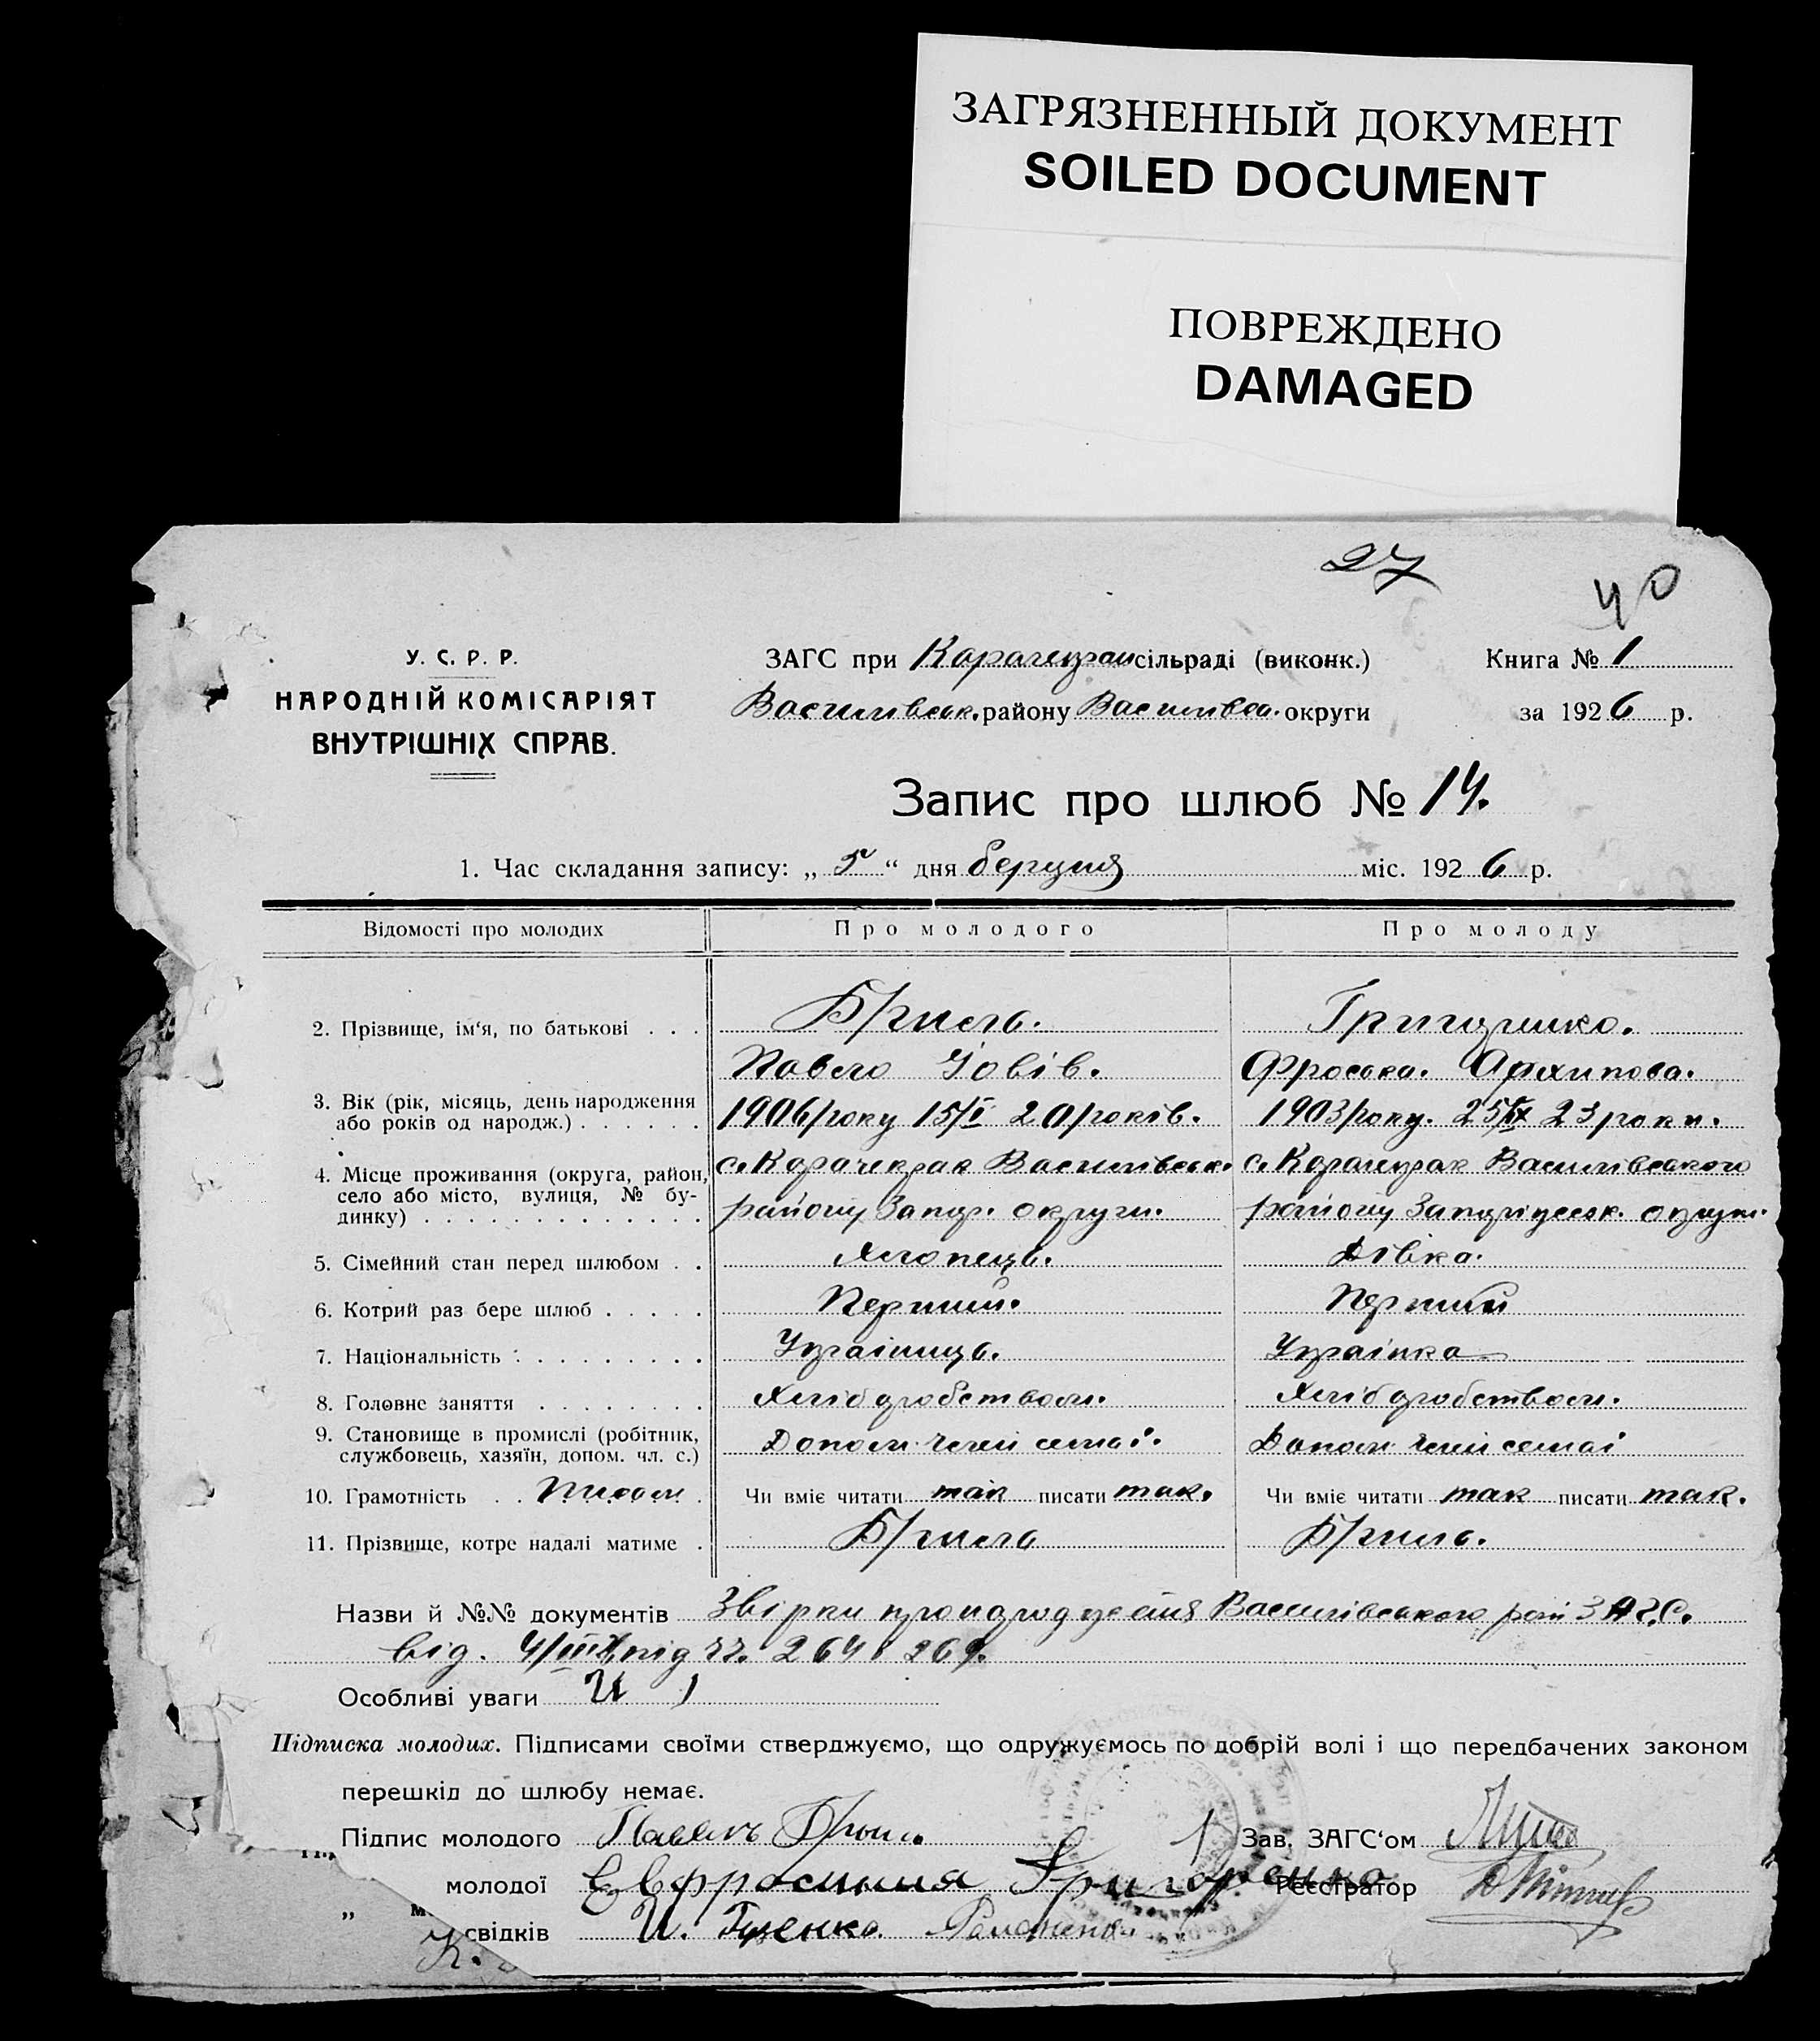 ЗАГРЯЗНЕННЫЙ ДОКУМЕНТ
SOILED DOCUMENT
ПОВРЕЖДЕНО
DAMAGED
27
40
У. С. Р. Р.
НАРОДНІЙ КОМІСАРІЯТ
ВНУТРІШНІХ СПРАВ.
ЗАГС при Карачекрак сільраді (виконк.)
Василівськ. району Василівсь. округи
Книга № 1
за 1926 р.
Запис про шлюб № 14.
1. Час складання запису: „ 5 “ дня березня міс. 1926 р.
Відомості про молодих Про молодого Про молоду
2. Прізвище, ім‘я, по батькові . . . Бриль. Григоренко.
Павло Іовів. Фроська. Архипова.
3. Вік (рік, місяць, день народження 1906 року 15/I 20 років. 1903 року. 25/IX 23 роки.
або років од народж.) . . . . . .
4. Місце проживання (округа, район, с. Карачекрак Василівськ. с. Карачекрак Василівського
село або місто, вулиця, № бу-
динку) . . . . . . . . . . . . . району Запор. округи. району Запоріжськ. округи.
5. Сімейний стан перед шлюбом . . Хлопець. Дівка.
6. Котрий раз бере шлюб . . . . . Перший. Перший
7. Національність . . . . . . . . . Українець. Українка
8. Головне заняття . . . . . . . . Хліборобством. Хліборобством.
9. Становище в промислі (робітник,
службовець, хазяїн, допом. чл. с.) Допом. член семьі. Допом. член семьі
10. Грамотність . . Чи вміє читати так писати так. Чи вміє читати так писати так.
11. Прізвище, котре надалі матиме . Бриль Бриль.
Назви й №№ документів Звірки про народження Василівського рай ЗАГС.
від. 4/III під чч. 264 і 269.
Особливі уваги
Підписка молодих. Підписами своїми стверджуємо, що одружуємось по добрій волі і що передбачених законом
перешкід до шлюбу немає.
Підпис молодого Павель Бриль Зав. ЗАГС‘ом
молодої Евфросиния Григоренко Реєстратор
„ свідків И. Гуденко
К.